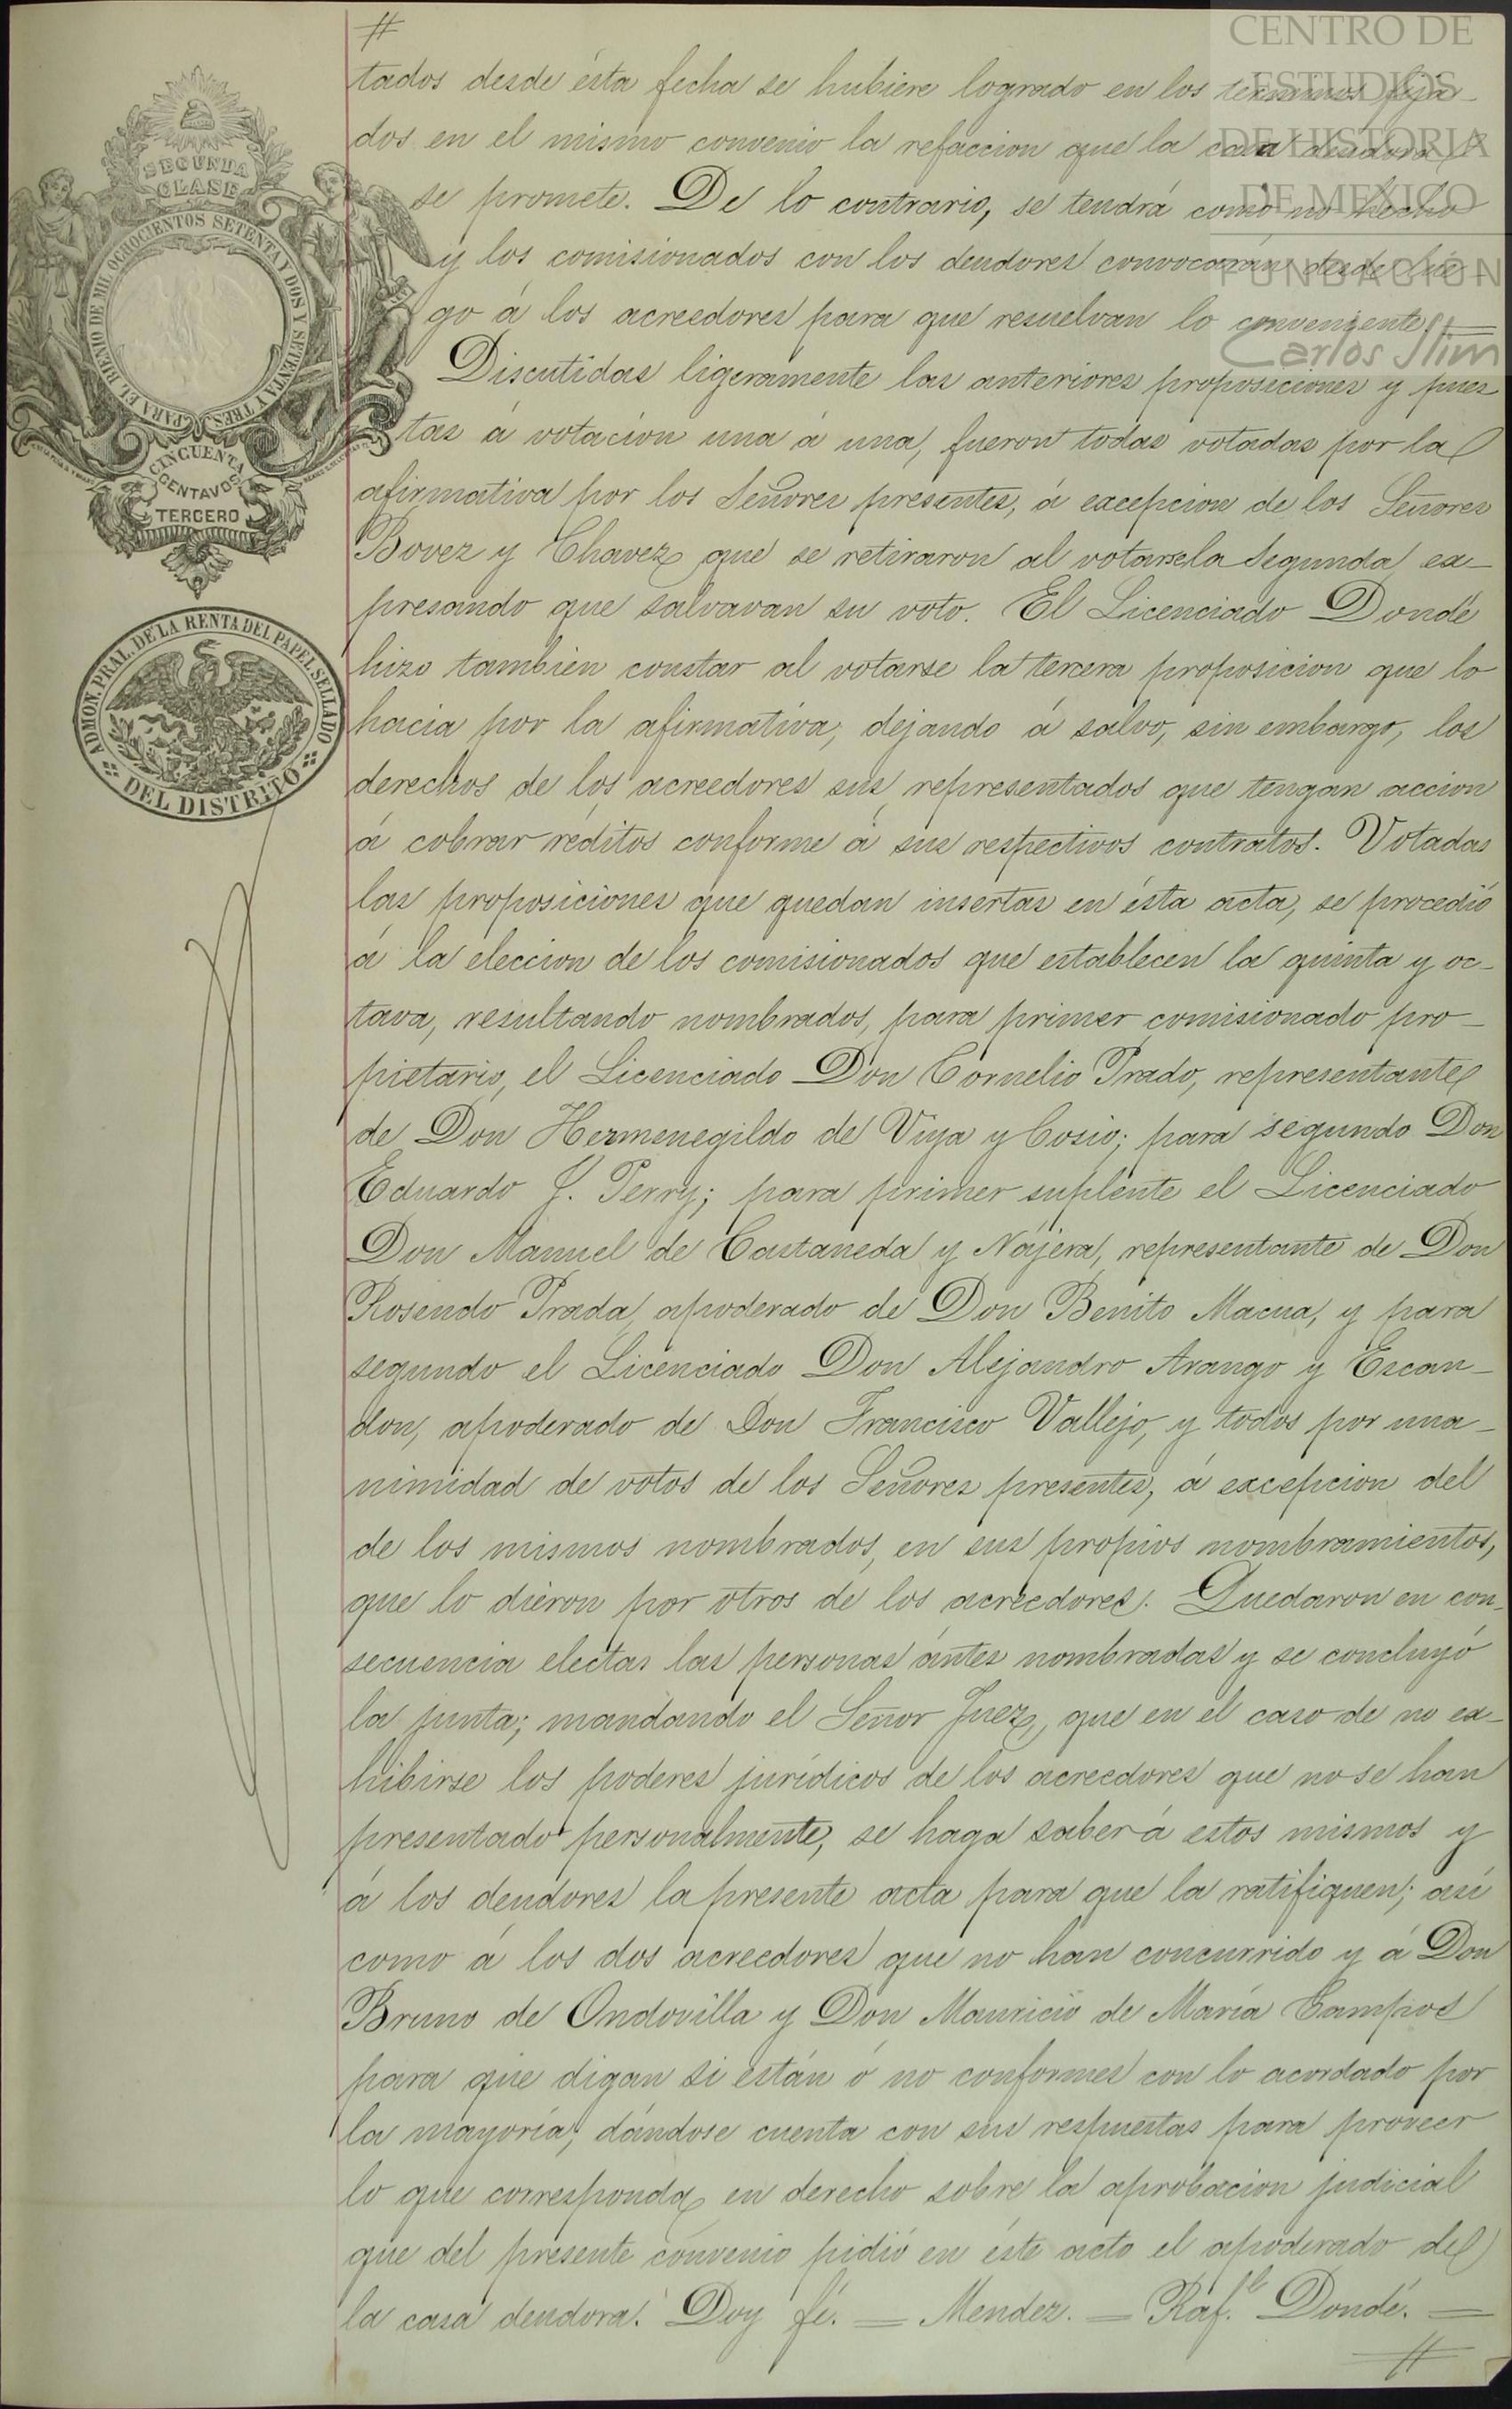 CENTRO DE
ESTUDIOS
DE HISTORIA
DE MEXICO
FUNDACIÓN
Carlos Slim
SEGUNDA
CLASE
PARA EL BIENIO DE MIL OCHOCIENTOS SETENTA Y DOS Y SETENTA Y TRES
CINCUENTA
CENTAVOS
TERCERO
ADMON. PRAL. DE LA RENTA DEL PAPEL SELLADO
DEL DISTRITO
#
tados desde ésta fecha se hubiere logrado en los terminos fija-
dos en el mismo convenio la refaccion que la casa deudora
se promete. De lo contrario, se tendrá como no hecho
y los comisionados con los deudores convocarán desde lue-
go á los acreedores para que resuelvan lo conveniente. =
Discutidas ligeramente las anteriores proposiciones y pues
tas á votacion una á una, fueron todas votadas por la
afirmativa por los Señores presentes, á excepcion de los Señores
Bovez y Chavez que se retiraron al votarse la Segunda ex-
presando que salvavan su voto. El Licenciado Dondé
hizo tambien constar al votarse la tercera proposicion que lo
hacia por la afirmativa; dejando á salvo, sin embargo, los
derechos de los acreedores sus representados que tengan accion
á cobrar réditos conforme á sus respectivos contratos. Votadas
las proposiciones que quedan insertas en ésta acta, se procedió
á la eleccion de los comisionados que establecen la quinta y oc-
tava, resultando nombrados, para primer comisionado pro-
pietario, el Licenciado Don Cornelio Prado, representante
de Don Hermenegildo de Viya y Cosio; para segundo Don
Eduardo J. Perry; para primer suplente el Licenciado
Don Manuel de Castañeda y Nájera, representante de Don
Rosendo Prada, apoderado de Don Benito Macua, y para
segundo el Licenciado Don Alejandro Arango y Escan-
don, apoderado de Don Francisco Vallejo, y todos por una-
nimidad de votos de los Señores presentes, á excepcion del
de los mismos nombrados, en sus propios nombramientos,
que lo dieron por otros de los acreedores. Quedaron en con-
secuencia electas las personas ántes nombradas y se concluyó
la junta; mandando el Señor Juez, que en el caso de no ex-
hibirse los poderes jurídicos de los acreedores que no se han
presentado personalmente, se haga saber á estos mismos y
á los deudores la presente acta para que la ratifiquen; asi
como á los dos acreedores que no han concurrido y á Don
Bruno de Ondovilla y Don Mauricio de María Campos
para que digan si están ó no conformes con lo acordado por
la mayoría; dándose cuenta con sus respuestas para proveer
lo que corresponda en derecho sobre la aprobacion judicial
que del presente convenio pidió en éste acto el apoderado de
la casa deudora. Doy fé. = Mendez. = Raf.l Dondé. =
#